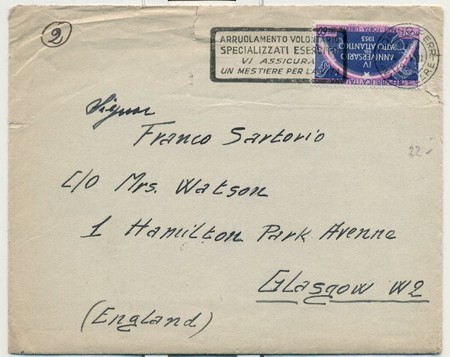 2
ARRUOLAMENTO VOLONTARI
SPECIALIZZATI ESERCITO
VI ASSICURA
UN MESTIERE PER LA
IV
ANNIVERSARIO
PATTO ATLANTICO
1953
Signor
Franco Sartorio
C/O Mrs. Watson
22-
1 Hamilton Park Avenue
Glasgow W2
(England)